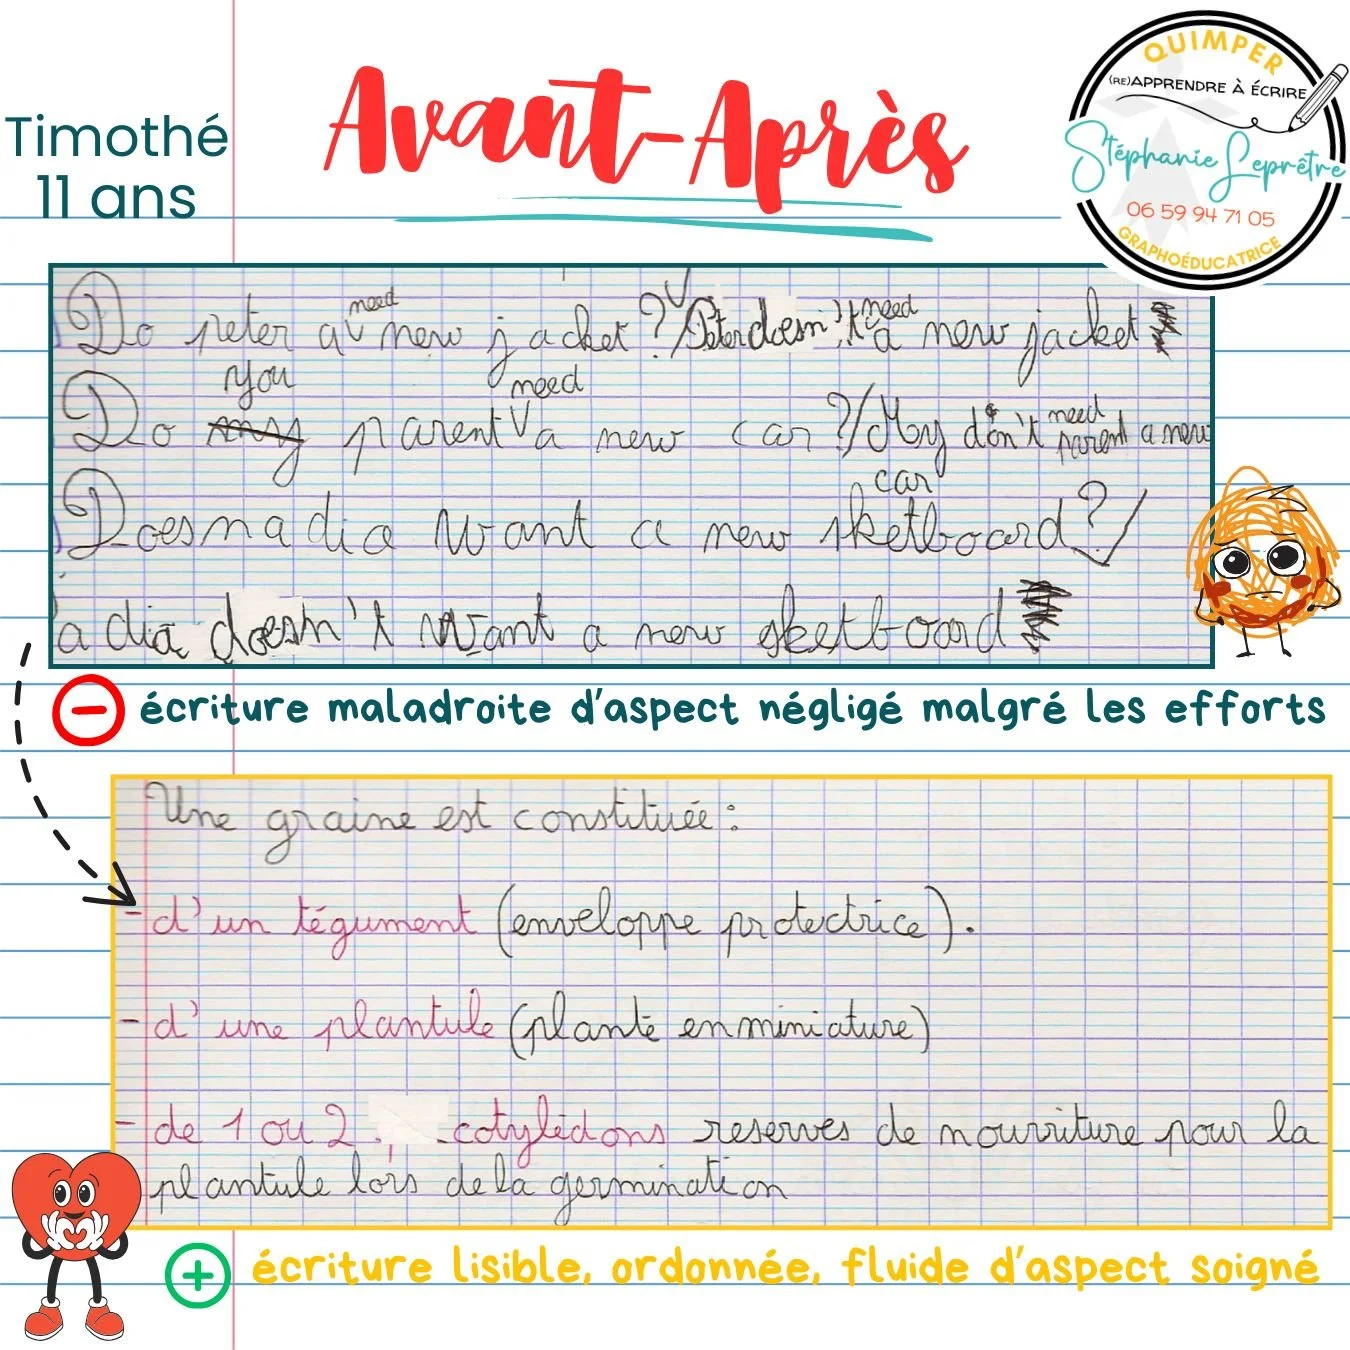 Timothé
11 ans
Avant-Après
QUIMPER
(RE)APPRENDRE À ÉCRIRE
Stéphanie Leprêtre
06 59 94 71 05
GRAPHOÉDUCATRICE
need need
Do peter a new jacket ? / Peter doesn't a new jacket
you need
Do my parent a new car ? / My don't need parent a new
car
Does nadia want a new sketboard ? /
adia doesn't want a new sketboard
écriture maladroite d'aspect négligé malgré les efforts
Une graine est constituée :
- d'un tégument (enveloppe protectrice).
- d'une plantule (plante en miniature)
- de 1 ou 2 cotylédons reserves de nourriture pour la
plantule lors de la germination
écriture lisible, ordonnée, fluide d'aspect soigné